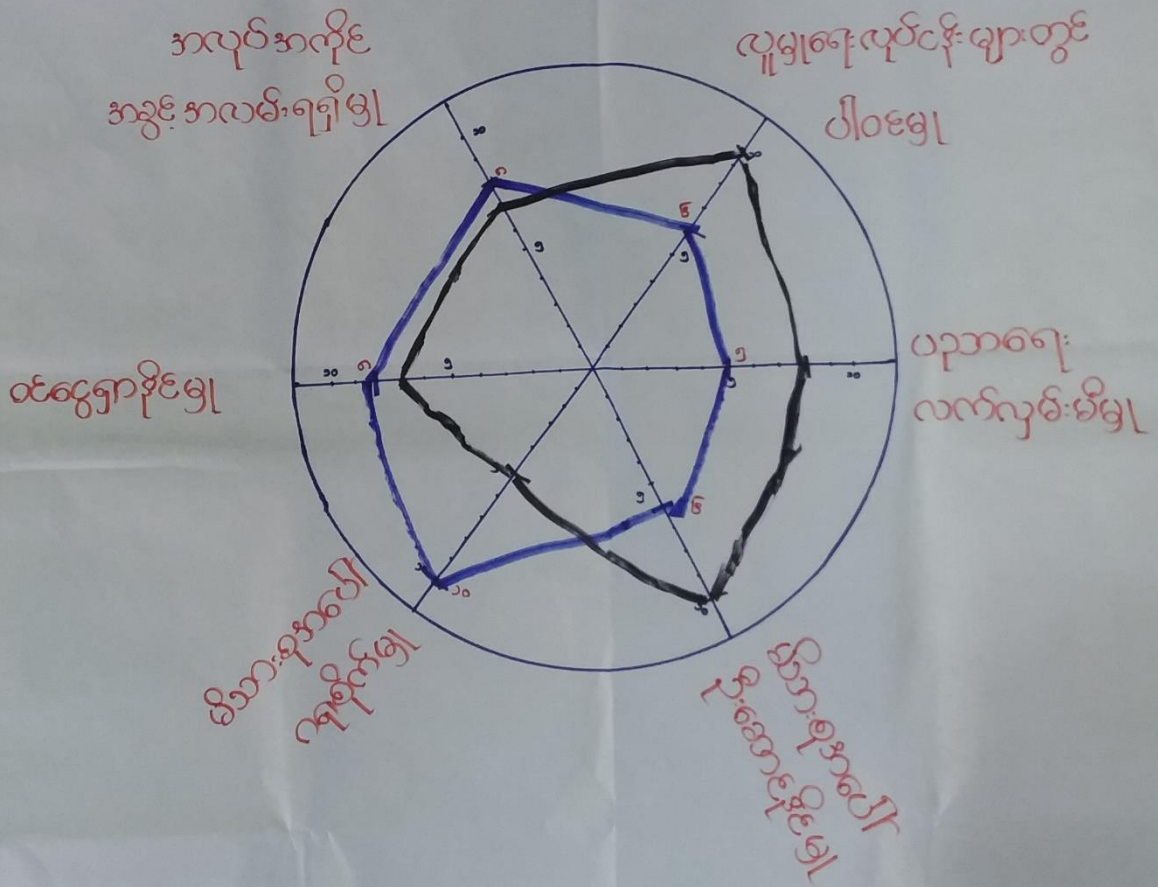 အလုပ်အကိုင်
အခွင့်အလမ်းရရှိမှု
လူမှုရေးလုပ်ငန်းများတွင်
ပါဝင်မှု
ပညာရေး
လက်လှမ်းမီမှု
မိသားစုအပေါ်
ဦးဆောင်နိုင်မှု
မိသားစုအပေါ်
ဂရုစိုက်မှု
ဝင်ငွေရှာနိုင်မှု
၁၀
၅
၁၀
၆
၅
၅
၅
၁၀
၅
၆
၁၀
၁၀
၅